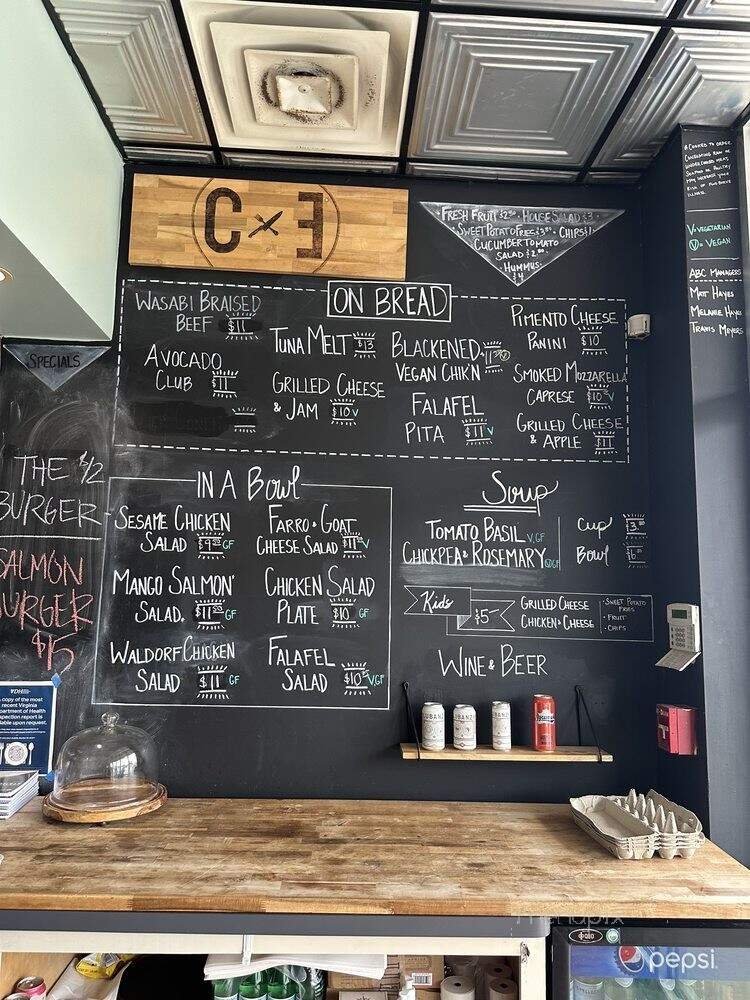 C E
FRESH FRUIT HOUSE SALAD $3
SWEET POTATO FRIES CHIPS
CUCUMBER TOMATO
SALAD
HUMMUS
$4
SPECIALS
THE 1/2
BURGER
SALMON
BURGER
$15
ON BREAD
WASABI BRAISED
BEEF $11
AVOCADO
CLUB $11
TUNA MELT $13
GRILLED CHEESE
& JAM $10 V
BLACKENED
VEGAN CHIK'N
FALAFEL
PITA $11 V
PIMENTO CHEESE
PANINI $10
SMOKED MOZZARELLA
CAPRESE V
GRILLED CHEESE
& APPLE $11
IN A Bowl
SESAME CHICKEN
SALAD GF
MANGO SALMON
SALAD GF
WALDORF CHICKEN
SALAD $11 GF
FARRO & GOAT
CHEESE SALAD V
CHICKEN SALAD
PLATE $10 GF
FALAFEL
SALAD V,GF
Soup
TOMATO BASIL V,GF
CHICKPEA & ROSEMARY
Cup
Bowl
Kids
$5
GRILLED CHEESE
CHICKEN & CHEESE
• SWEET POTATO
FRIES
• FRUIT
• CHIPS
WINE & BEER
V=VEGETARIAN
V=VEGAN
ABC MANAGERS
MATT HAYES
MELANIE HAYES
TRAVIS MEYERS
VDH
copy of the most
recent Virginia
Department of Health
inspection report is
available upon request.
pepsi